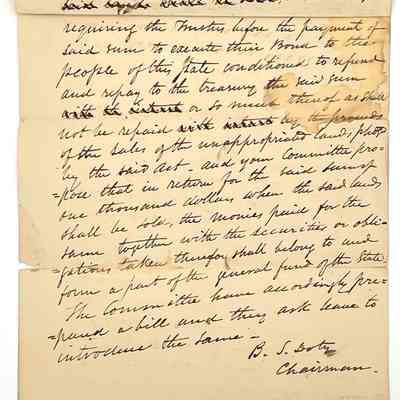 requiring the Trustees before the payment of
said sum to execute their Bond to the
people of this State conditioned to refund
and repay to the treasury the said sum
with the interest or so much thereof as shall
not be repaid with interest by the proceeds
of the sales of the unappropriated lands
by the said Act - and your Committee pro-
=pose that in return for the said sum of
one thousand dollars when the said lands
shall be sold, the monies paid for the
same together with the securities or obli-
=gations taken therefor shall belong to and
form a part of the general fund of the State
The Committee have accordingly pre-
=pared a bill and they ask leave to
introduce the same -
B. S. Doty
Chairman.